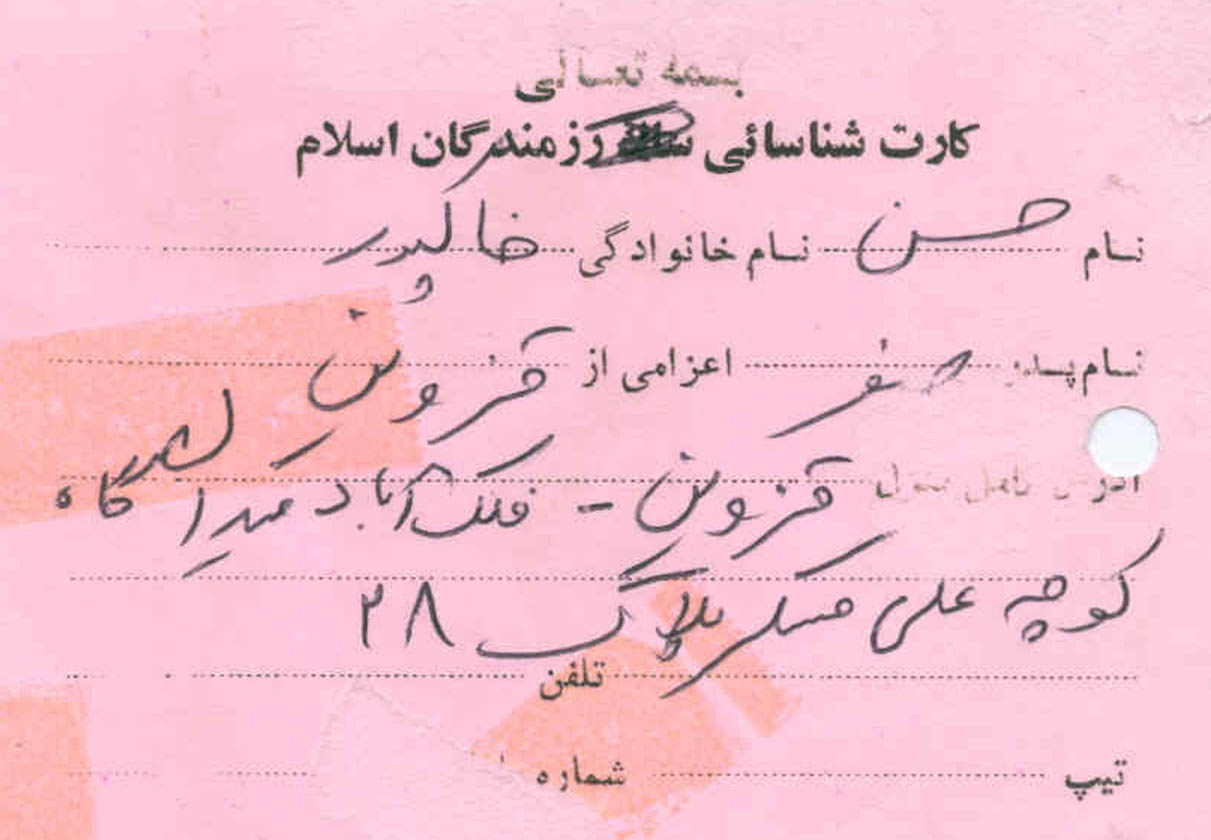 بسمه تعالی
کارت شناسائی رزمندگان اسلام
نام حسن نام خانوادگی خاکپور
نام پدر صفر اعزامی از قزوین
آدرس کامل منزل قزوین - فلک آباد
کوچه علی عسگر پلاک ۲۸
تلفن
تیپ شماره